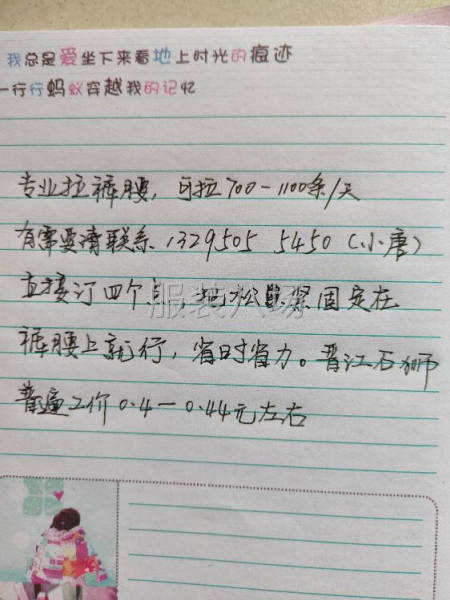 我总是爱坐下来看地上时光的痕迹
一行行蚂蚁穿越我的记忆
专业拉裤腰，可拉700-1100条/天
有需要请联系 1329505 5450（小唐）
直接订四个点，把松紧固定在
裤腰上就行，省时省力。晋江石狮
普遍工价0.4-0.44元左右
服装六场